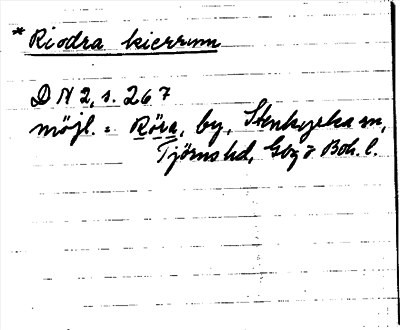 * Riodra kierrum
D N 2, s. 267
möjl. = Röra, by, Stenkyrka sn,
Tjörns hd, Gbg o Boh. l.